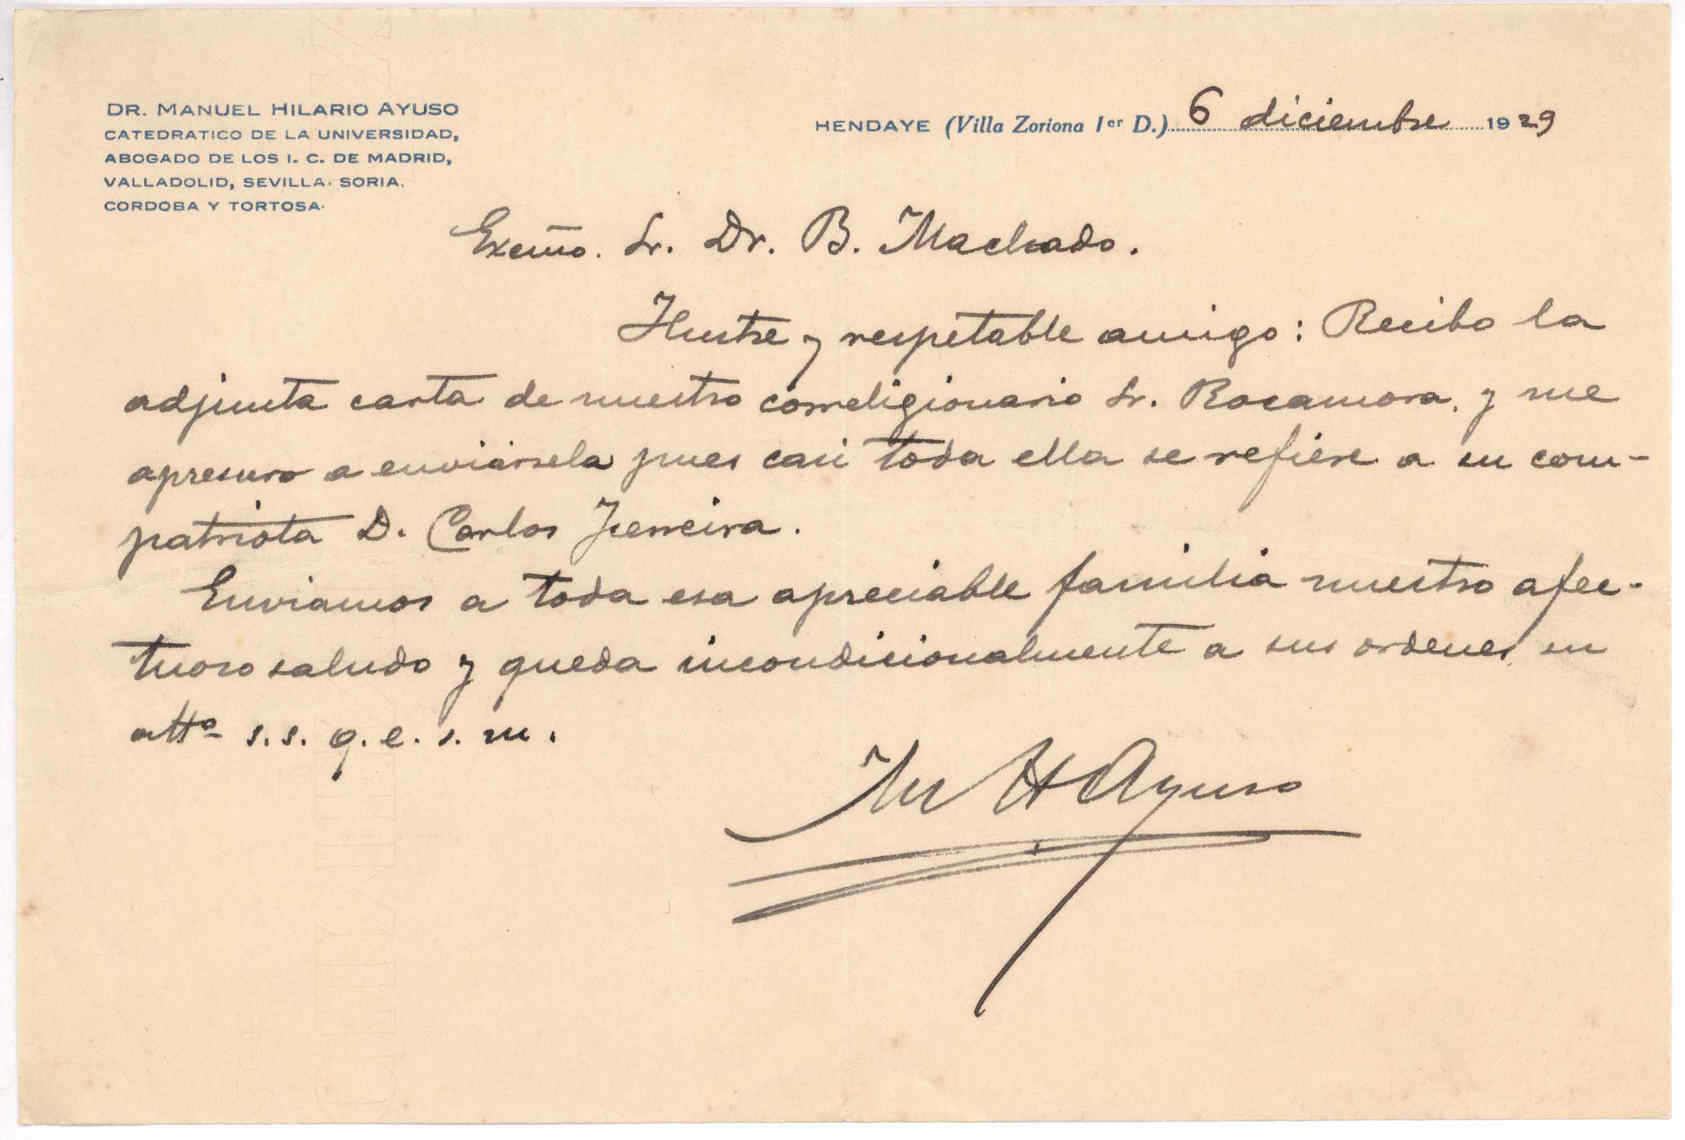 DR. MANUEL HILARIO AYUSO
CATEDRATICO DE LA UNIVERSIDAD,
ABOGADO DE LOS I. C. DE MADRID,
VALLADOLID, SEVILLA. SORIA.
CORDOBA Y TORTOSA.
HENDAYE (Villa Zoriona 1er D.) 6 diciembre 1929
Excmo. Sr. Dr. B. Machado.
Ilustre y respetable amigo: Recibo la
adjunta carta de nuestro correligionario Sr. Rocamora, y me
apresuro a enviársela pues casi toda ella se refiere a su com-
patriota D. Carlos Ferreira.
Enviamos a toda esa apreciable familia nuestro afec-
tuoso saludo y queda incondicionalmente a sus ordenes su
atto s. s. q. e. s. m.
M H Ayuso